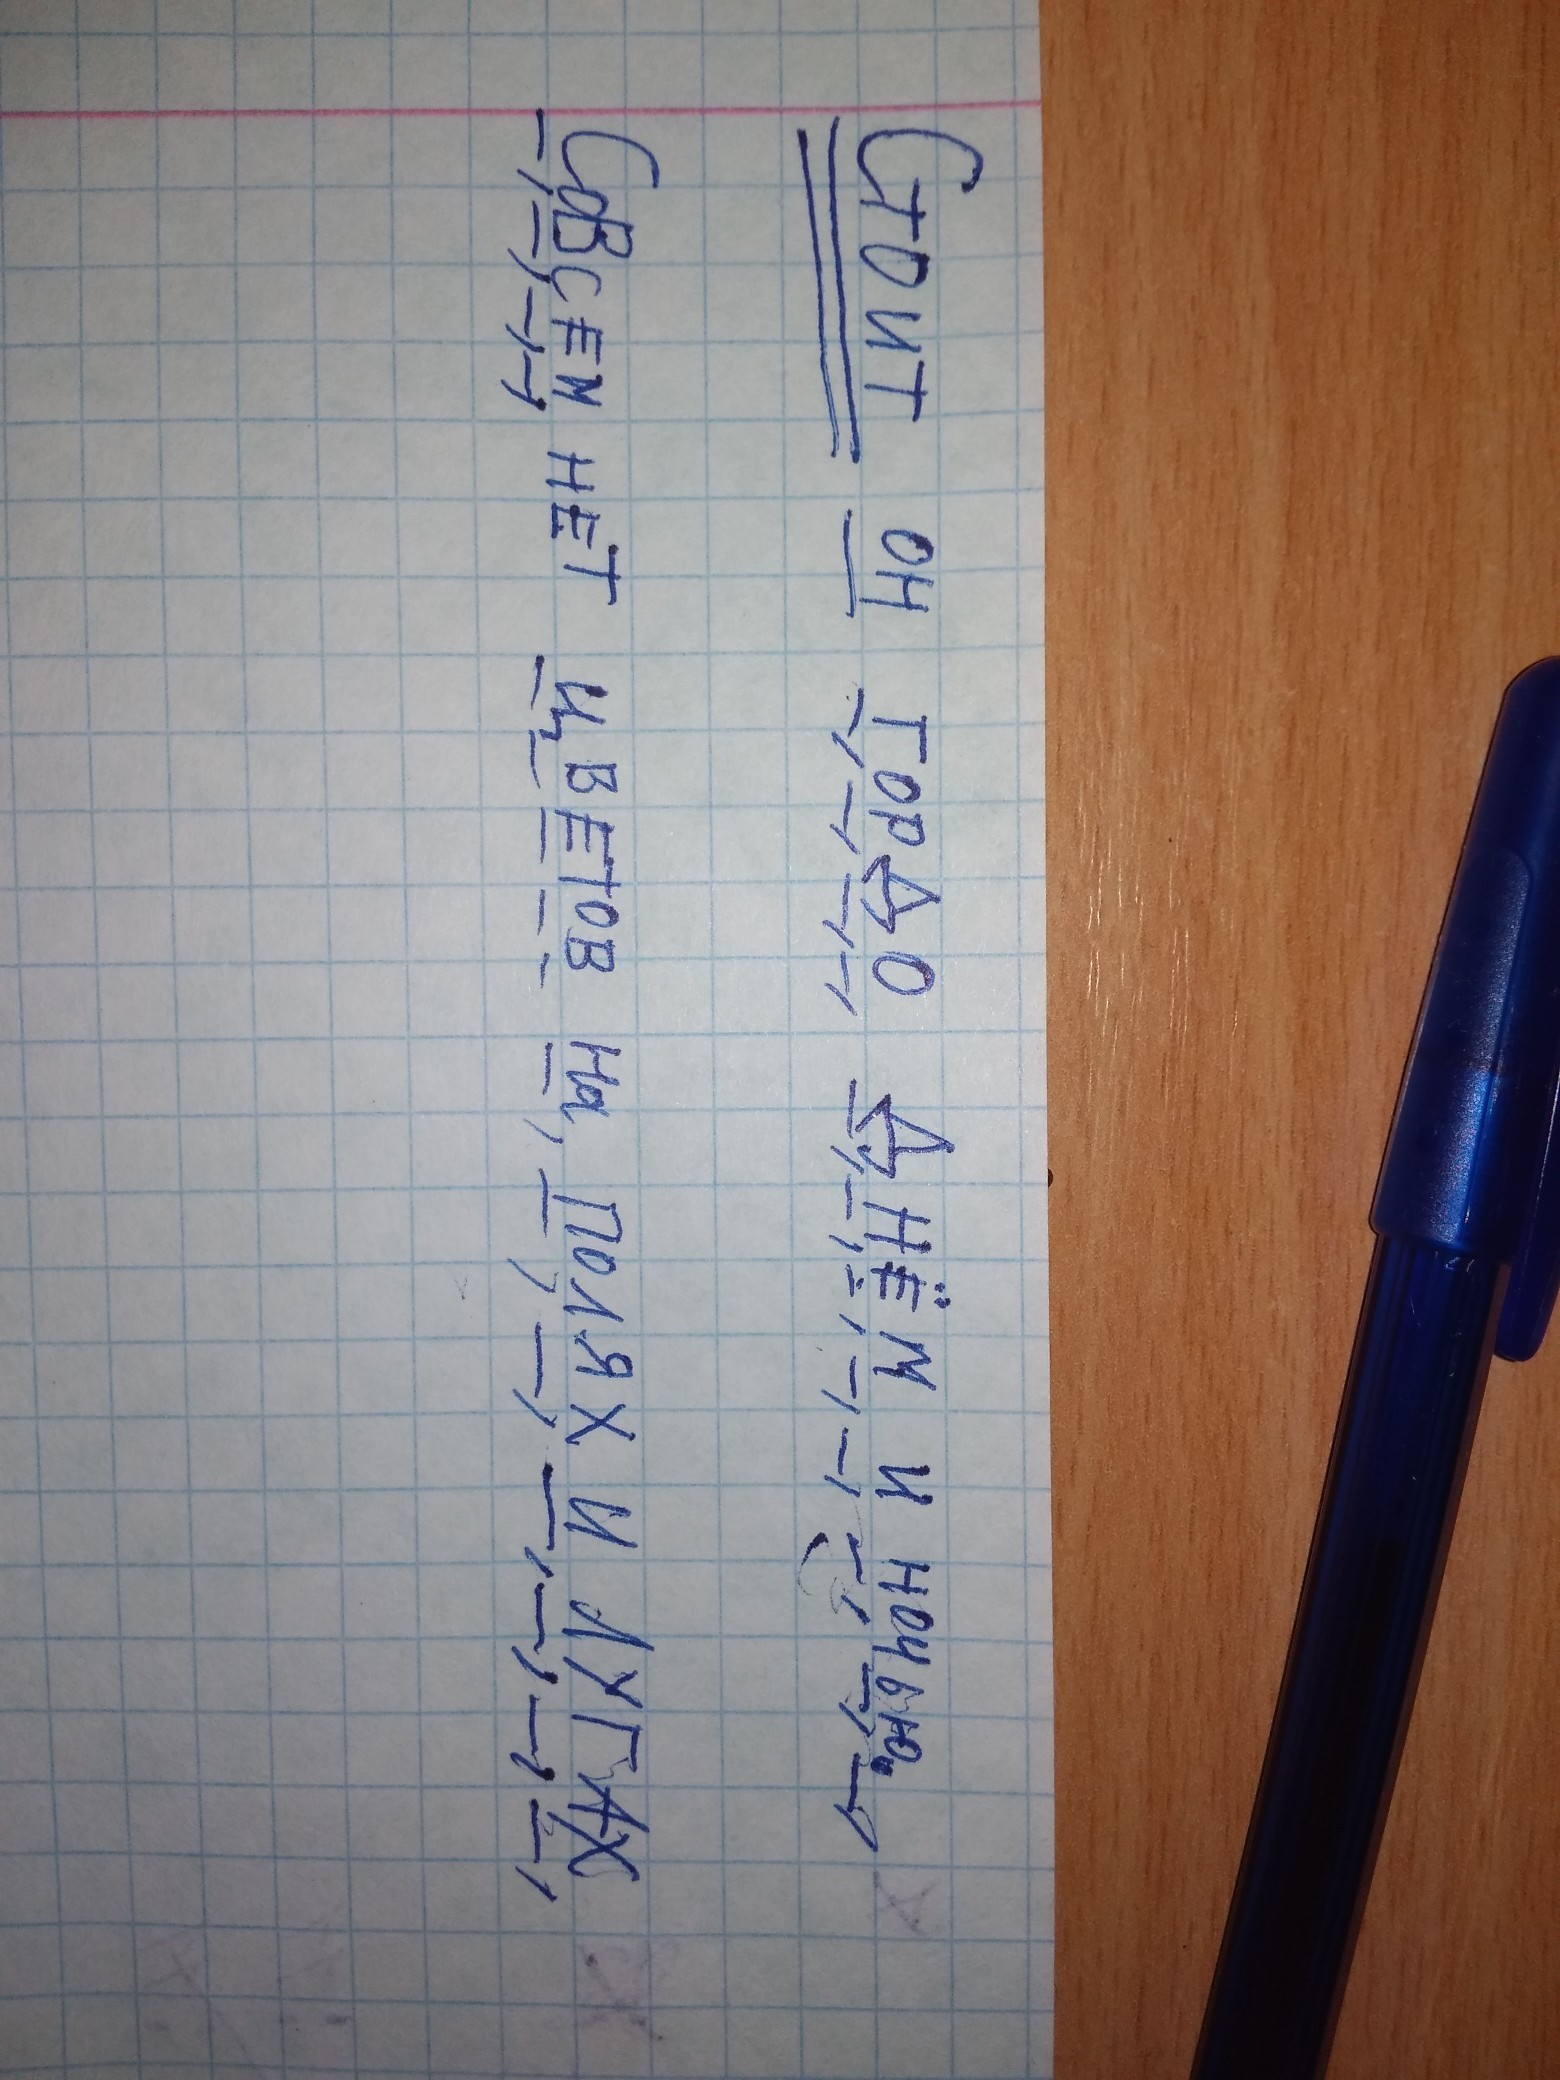 Стоит он гордо днём и ночью.
Совсем нет цветов на полях и лугах